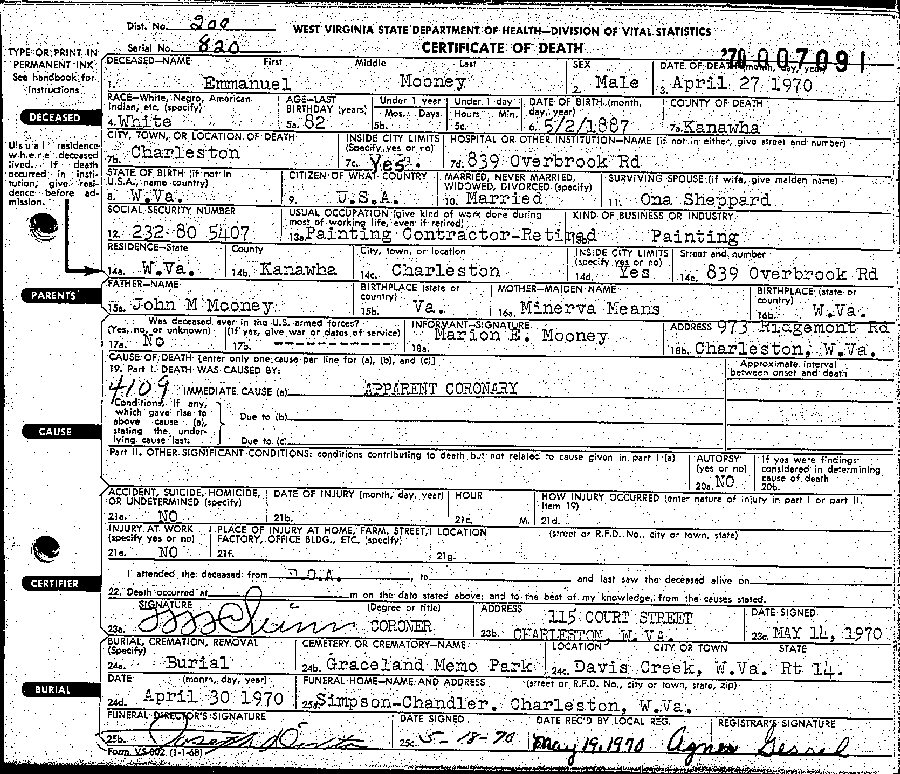 Dist. No. 200
WEST VIRGINIA STATE DEPARTMENT OF HEALTH—DIVISION OF VITAL STATISTICS
Serial No. 820
CERTIFICATE OF DEATH
270 007091
TYPE OR PRINT IN PERMANENT INK
See handbook for Instructions
DECEASED—NAME First Middle Last SEX DATE OF DEATH (month, day, year)
1. Emmanuel Mooney 2. Male 3. April 27 1970
DECEASED
RACE—White, Negro, American Indian, etc. (specify) AGE—LAST BIRTHDAY (years) Under 1 year Mos. Days Under 1 day Hours Min. DATE OF BIRTH (month, day, year) COUNTY OF DEATH
4. White 5a. 82 5b. 5c. 6. 5/2/1887 7a. Kanawha
Usual residence where deceased lived. If death occurred in institution, give residence before admission.
CITY, TOWN, OR LOCATION OF DEATH INSIDE CITY LIMITS (Specify yes or no) HOSPITAL OR OTHER INSTITUTION—NAME (if not in either, give street and number)
7b. Charleston 7c. Yes. 7d. 839 Overbrook Rd
STATE OF BIRTH (if not in U.S.A., name country) CITIZEN OF WHAT COUNTRY MARRIED, NEVER MARRIED, WIDOWED, DIVORCED (specify) SURVIVING SPOUSE (if wife, give maiden name)
8. W.Va. 9. U.S.A. 10. Married 11. Ona Sheppard
SOCIAL SECURITY NUMBER USUAL OCCUPATION (give kind of work done during most of working life, even if retired) KIND OF BUSINESS OR INDUSTRY
12. 232 80 5407 13a. Painting Contractor-Retired 13b. Painting
RESIDENCE—State County City, town, or location INSIDE CITY LIMITS (specify yes or no) Street and number
14a. W.Va. 14b. Kanawha 14c. Charleston 14d. Yes 14e. 839 Overbrook Rd
PARENTS
FATHER—NAME BIRTHPLACE (state or country) MOTHER—MAIDEN NAME BIRTHPLACE (state or country)
15a. John M Mooney 15b. Va. 16a. Minerva Means 16b. W.Va.
Was deceased ever in the U.S. armed forces? (Yes, no, or unknown) (If yes, give war or dates of service) INFORMANT—SIGNATURE ADDRESS 973 Ridgemont Rd
17a. No 17b. -------- 18a. Marion E. Mooney 18b. Charleston, W.Va.
CAUSE OF DEATH [enter only one cause per line for (a), (b), and (c)] Approximate interval between onset and death
19. Part I. DEATH WAS CAUSED BY:
4109 IMMEDIATE CAUSE (a) APPARENT CORONARY
Conditions, if any, which gave rise to above cause (a), stating the underlying cause last:
Due to (b)
CAUSE
Due to (c)
Part II. OTHER SIGNIFICANT CONDITIONS: conditions contributing to death but not related to cause given in part I (a) AUTOPSY (yes or no) If yes were findings considered in determining cause of death
20a. NO 20b.
ACCIDENT, SUICIDE, HOMICIDE, OR UNDETERMINED (specify) DATE OF INJURY (month, day, year) HOUR HOW INJURY OCCURRED (enter nature of injury in part I or part II, Item 19)
21a. NO 21b. 21c. M. 21d.
INJURY AT WORK (specify yes or no) PLACE OF INJURY AT HOME, FARM, STREET, FACTORY, OFFICE BLDG., ETC. (specify) LOCATION (street or R.F.D. No., city or town, state)
21e. NO 21f. 21g.
CERTIFIER
I attended the deceased from D.O.A. , to and last saw the deceased alive on
22. Death occurred at m on the date stated above; and to the best of my knowledge, from the causes stated.
SIGNATURE (Degree or title) ADDRESS 115 COURT STREET DATE SIGNED
23a. CORONER 23b. CHARLESTON, W. VA. 23c. MAY 14, 1970
BURIAL, CREMATION, REMOVAL (Specify) CEMETERY OR CREMATORY—NAME LOCATION CITY OR TOWN STATE
24a. Burial 24b. Graceland Memo Park 24c. Davis Creek, W.Va. Rt 14.
BURIAL
DATE (month, day, year) FUNERAL HOME—NAME AND ADDRESS (street or R.F.D. No., city or town, state, zip)
24d. April 30 1970 25a. Simpson-Chandler. Charleston, W.Va.
FUNERAL DIRECTOR'S SIGNATURE DATE SIGNED DATE REC'D BY LOCAL REG. REGISTRAR'S SIGNATURE
25b. Joseph 25c. 5-18-70 May 19, 1970 Agnes Gessel
Form VS-002 (1-1-68)